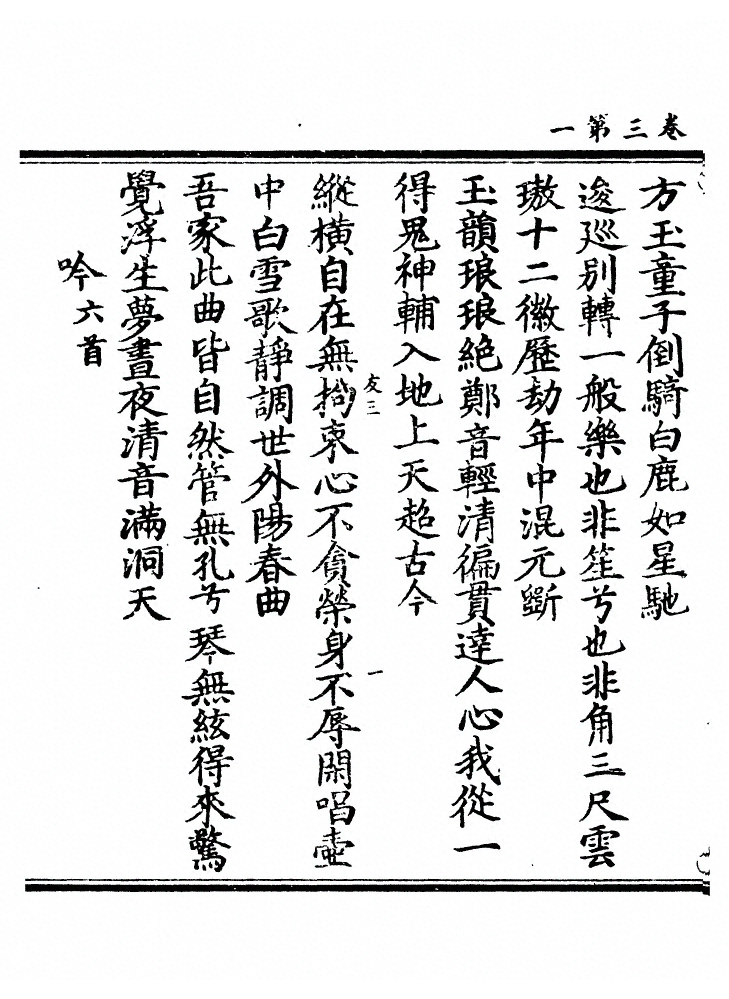 卷三第一
方玉童子倒騎白鹿如星馳
逡廵別轉一般樂也非笙兮也非角三尺雲
璈十二徽歷劫年中混元斵
玉韻琅琅絶鄭音輕清徧貫達人心我從一
得鬼神輔入地上天超古今
縱橫自在無拘束心不貪榮身不辱閑唱壺
友三
一
中白雪歌靜調世外陽春曲
吾家此曲皆自然管無孔兮琴無絃得來驚
覺浮生夢晝夜清音滿洞天
吟六首